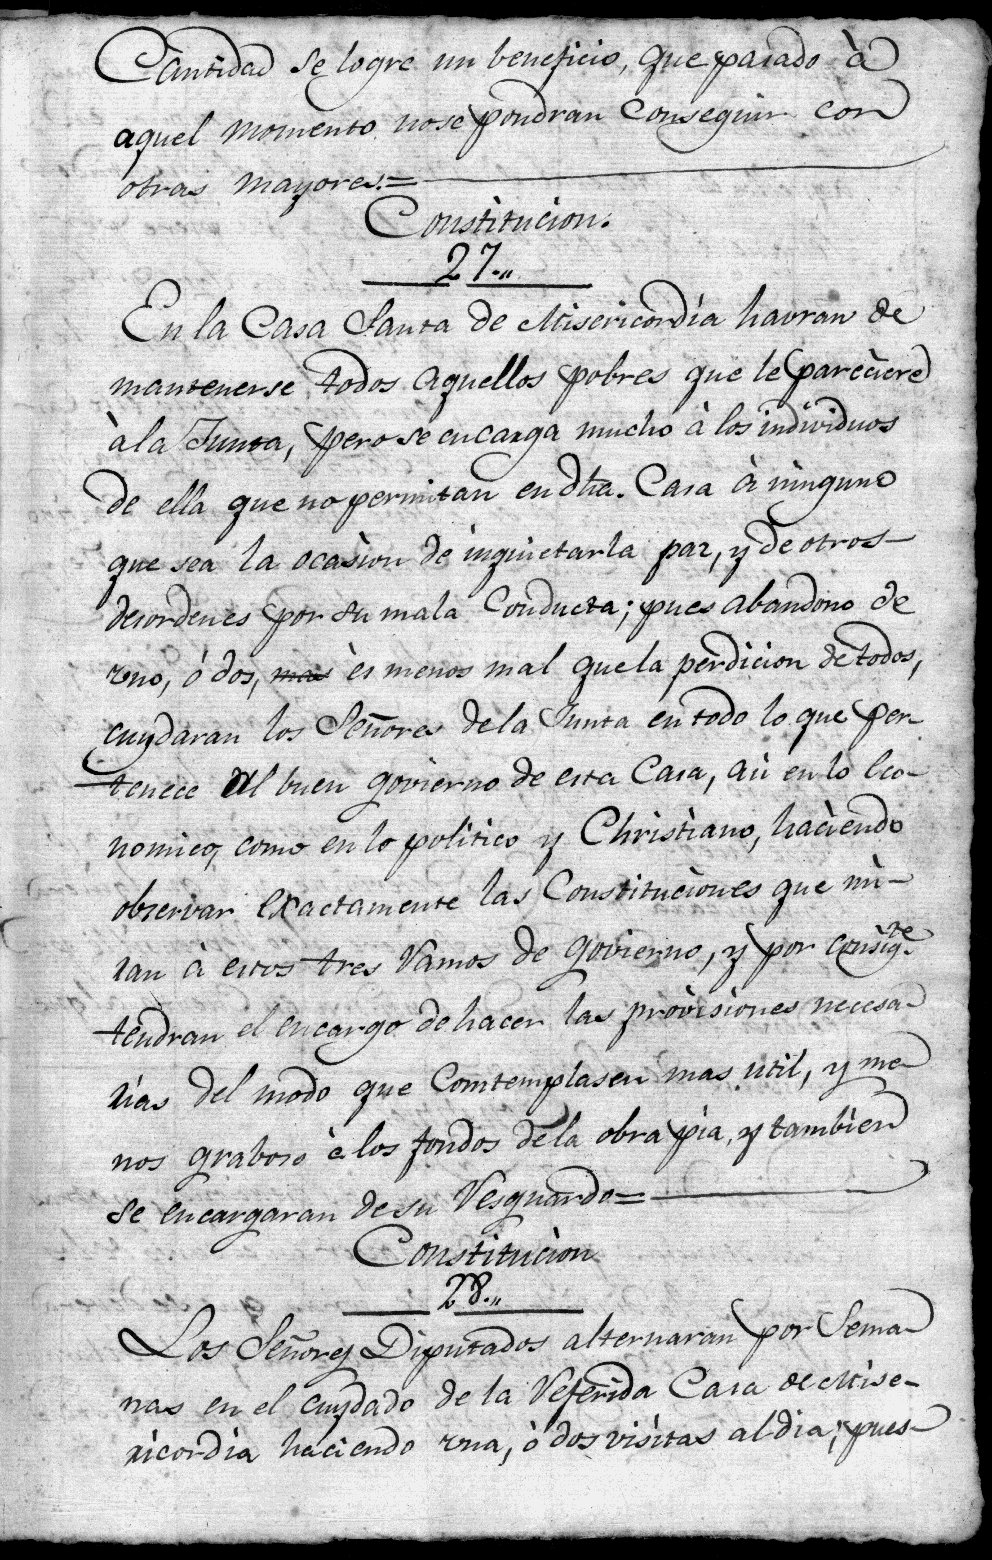 Cantidad se logre un beneficio, que pasado à
aquel momento no se pondran conseguir con
otras mayores.=
Constitucion.
27.,,
En la Casa Santa de Misericordia havran de
mantenerse todos aquellos pobres que le pareciere
à la Junta, pero se encarga mucho à los individuos
de ella que no permitan en dha. Casa à ninguno
que sea la ocasion de inquietar la paz, y de otros
desordenes por su mala Conducta; pues abandono de
uno, ó dos, mas ès menos mal que la perdicion de todos,
cuydaran los Señores de la Junta en todo lo que per-
tenece al buen govierno de esta Casa, asi en lo Eco-
nomico, como en lo politico y Christiano, haciendo
observar exactamente las Constituciones que mi-
ran à estos tres Ramos de govierno, y por consigte.
tendran el encargo de hacer las provisiones necesa-
rias del modo que Comtemplasen mas util, y me-
nos graboso à los fondos de la obra pia, y tambien
se encargaran de su Resguardo=
Constitucion
28.,,
Los Señores Diputados alternaran por Sema-
nas en el cuydado de la Referida Casa de Mise-
ricordia haciendo una, ò dos visitas al dia; pues